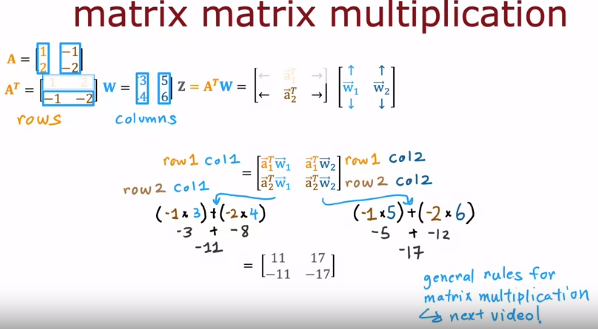 matrix matrix multiplication
A = [1 -1
2 -2]
Aᵀ = [1 2
-1 -2]
W = [3 5
4 6]
Z = AᵀW = [← a⃗₁ᵀ →
← a⃗₂ᵀ →] [↑ ↑
w⃗₁ w⃗₂
↓ ↓]
rows
columns
row1 col1 = [a⃗₁ᵀw⃗₁ a⃗₁ᵀw⃗₂] row1 col2
row2 col1 [a⃗₂ᵀw⃗₁ a⃗₂ᵀw⃗₂] row2 col2
(-1 × 3) + (-2 × 4)
-3 + -8
-11
(-1 × 5) + (-2 × 6)
-5 + -12
-17
= [11 17
-11 -17]
general rules for
matrix multiplication
↳ next video!